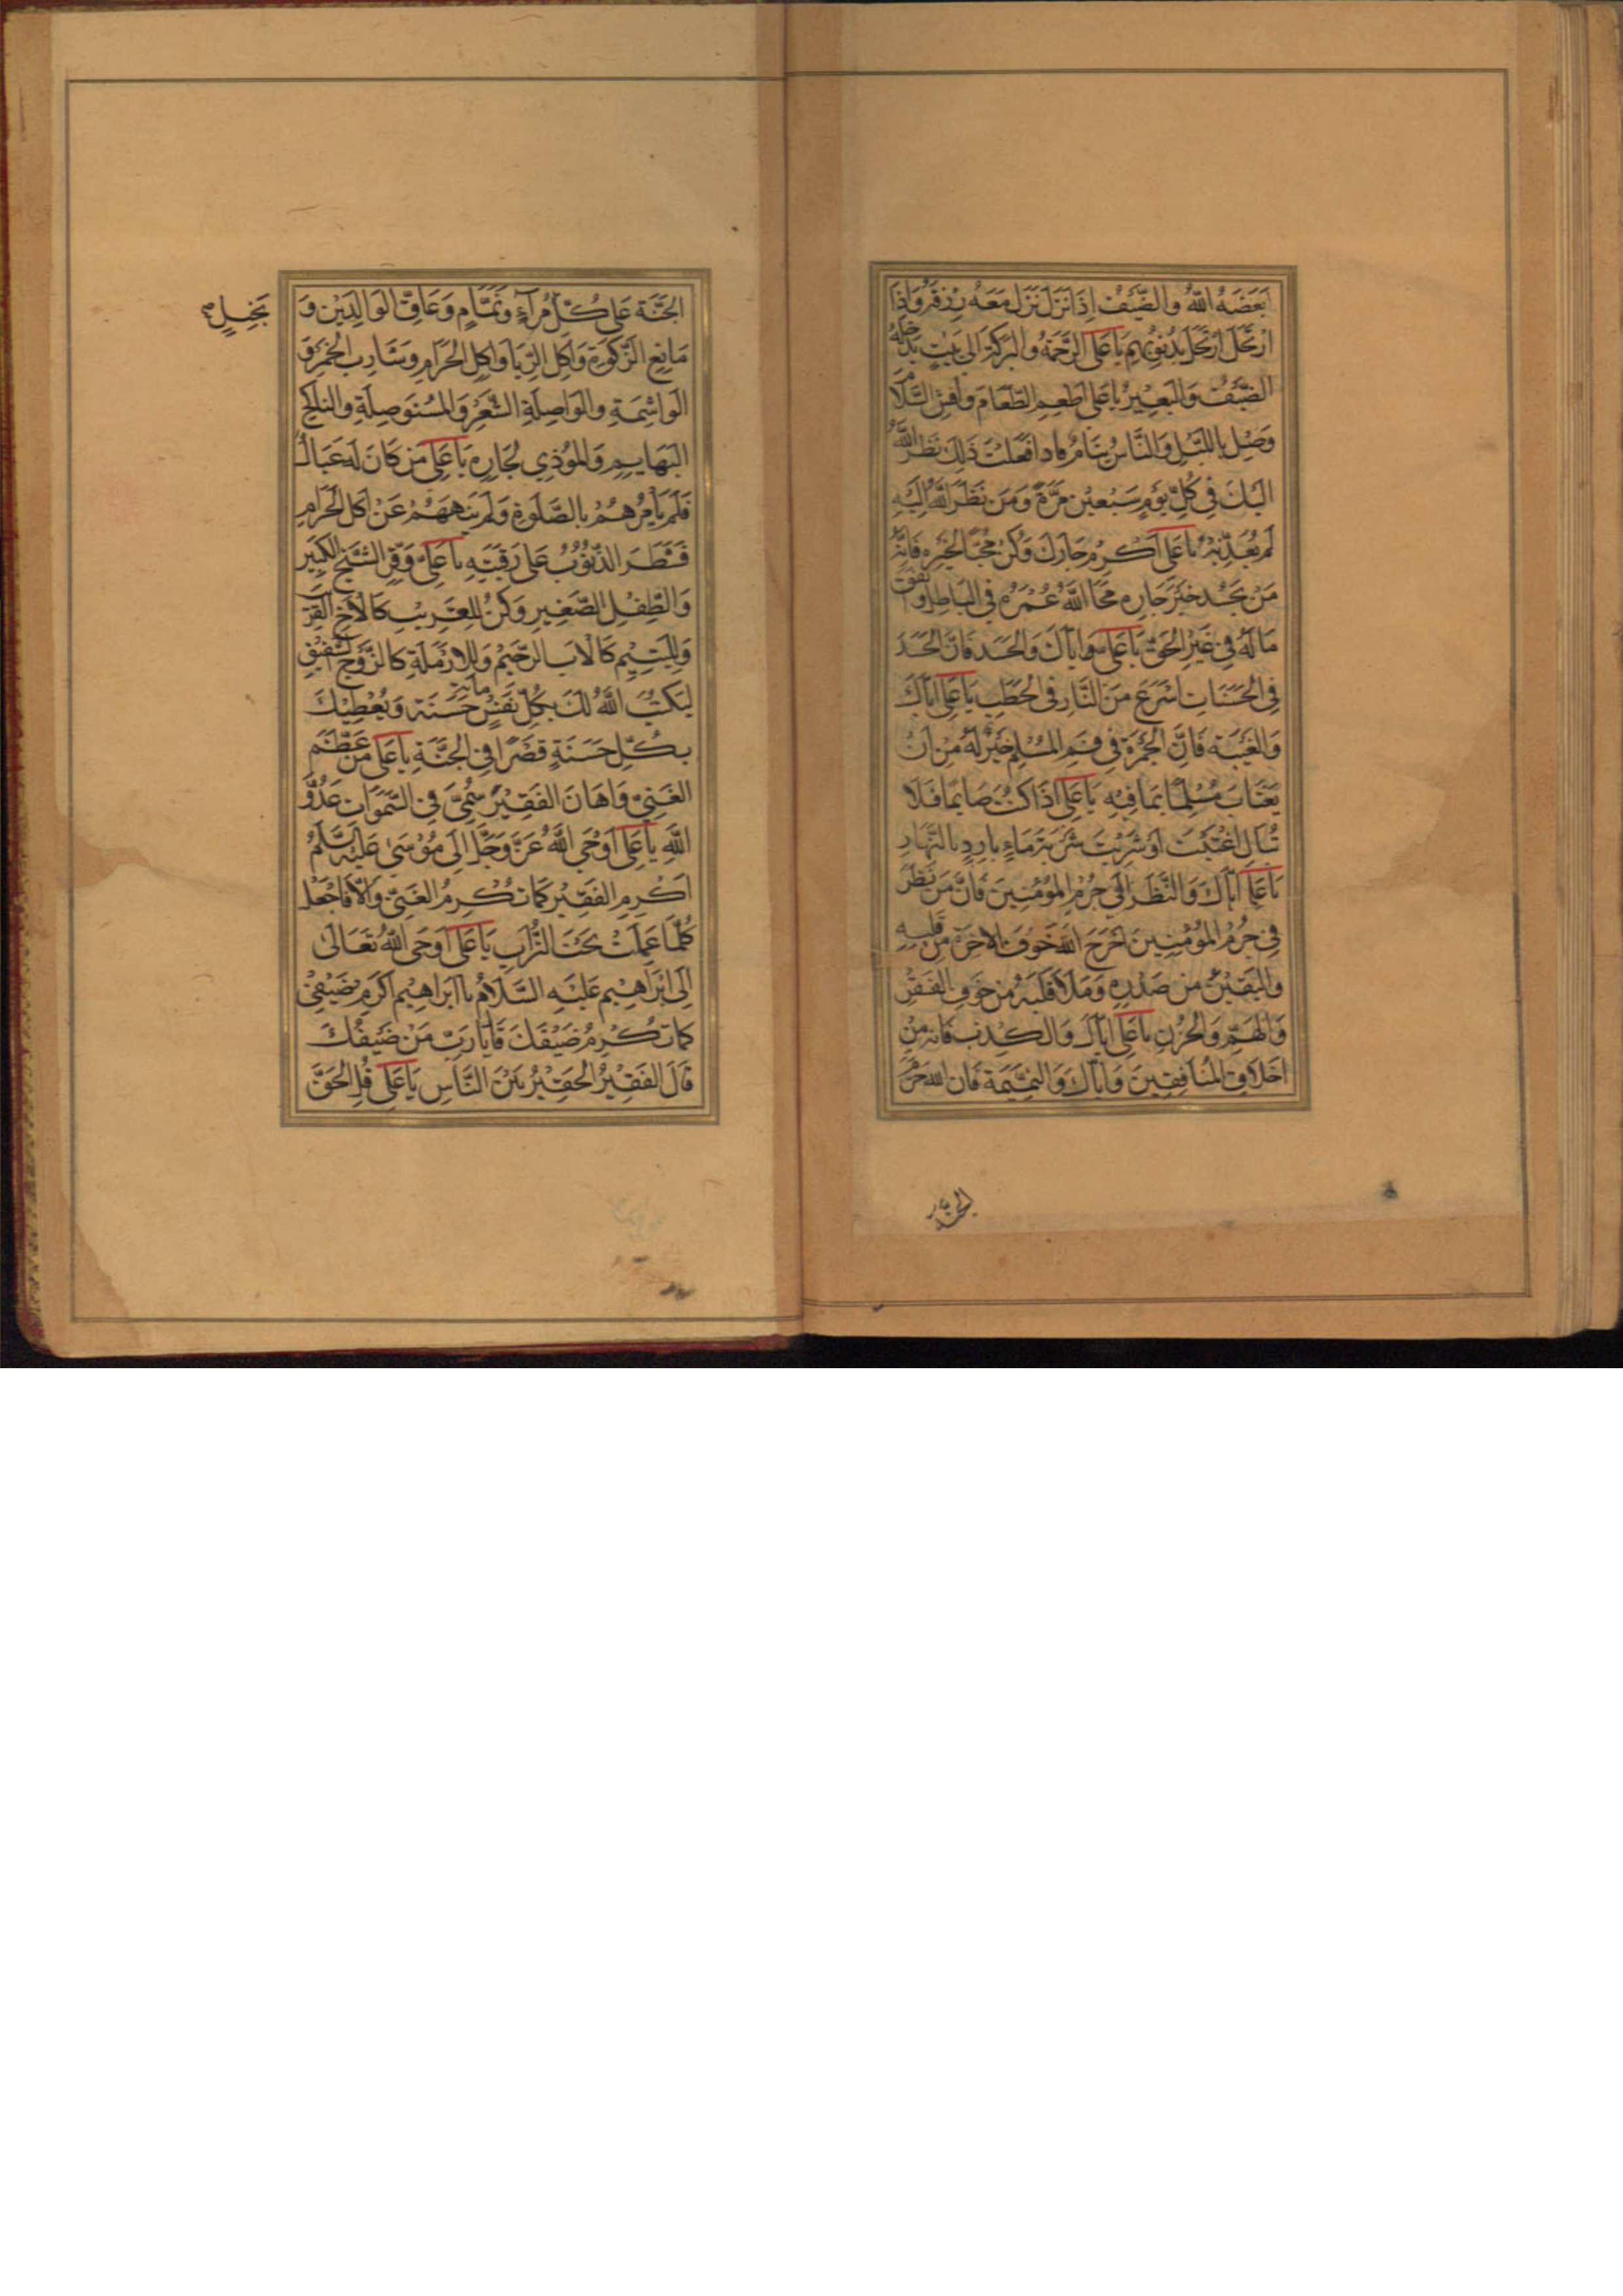 اَبْغَضَهُ اللّٰهُ والضَّيْفُ اِذَا نَزَلَ نَزَلَ مَعَهُ رِزْقُهُ وَاِذَا
ارْتَحَلَ ارْتَحَلَ بِذُنُوبِهِم يَا عَلِي الرَّحْمَةُ والبَرَكَةُ اِلَى بَيْتٍ يَدْخُلُهُ
الضَّيْفُ وَالبَعِيْرُ يَا عَلِي اَطْعِمِ الطَّعَامَ وَاَفْشِ السَّلَامَ
وَصَلِّ بِاللَّيْلِ وَالنَّاسُ نِيَامٌ فَاِذَا فَعَلْتَ ذٰلِكَ نَظَرَ اللّٰهُ
اِلَيْكَ فِي كُلِّ يَوْمٍ سَبْعِيْنَ مَرَّةً وَمَنْ نَظَرَ اللّٰهُ اِلَيْهِ
لَمْ يُعَذِّبْهُ يَا عَلِي اَكْرِمْ جَارَكَ وَكُنْ مُحِبًّا لِخَيْرِهِ فَاِنَّهُ
مَنْ يَحْسُدْ خَيْرَ جَارِهِ مَحَا اللّٰهُ عُمْرَهُ فِي البَاطِلِ وَيُنْفِقُ
مَالَهُ فِي غَيْرِ الحَقِّ يَا عَلِي وَاِيَّاكَ وَالحَسَدَ فَاِنَّ الحَسَدَ
فِي الحَسَنَاتِ اَسْرَعُ مِنَ النَّارِ فِي الحَطَبِ يَا عَلِي اِيَّاكَ
وَالغِيْبَةَ فَاِنَّ الجَمْرَةَ فِي فَمِ المُسْلِمِ خَيْرٌ لَهُ مِنْ اَنْ
يَغْتَابَ مُسْلِمًا بِمَا فِيْهِ يَا عَلِي اِذَا كُنْتَ صَايِمًا فَلَا
تُبَالِ اغْتَبْتَ اَوْ شَرِبْتَ شَرْبَةَ مَاءٍ بَارِدٍ بِالنَّهَارِ
يَا عَلِي اِيَّاكَ وَالنَّظَرَ اِلَى حُرَمِ المُؤْمِنِيْنَ فَاِنَّ مَنْ نَظَرَ
فِي حُرَمِ المُؤْمِنِيْنَ اَخْرَجَ اللّٰهُ خَوْفَ الاٰخِرَةِ مِنْ قَلْبِهِ
وَاليَقِيْنَ مِنْ صَدْرِهِ وَمَلَأَ قَلْبَهُ مِنْ خَوْفِ الفَقْرِ
وَالهَمِّ وَالحُزْنِ يَا عَلِي اِيَّاكَ وَالكِذْبَ فَاِنَّهُ مِنْ
اَخْلَاقِ المُنَافِقِيْنَ وَاِيَّاكَ وَالنَّمِيْمَةَ فَاِنَّ اللّٰهَ حَرَّمَ
الجنّة
الجَنَّةَ عَلَى كُلِّ مُرَآءٍ وَنَمَّامٍ وَعَاقِّ الوَالِدَيْنِ وَ
بَخِيلٍ
مَانِعِ الزَّكٰوةِ وَاٰكِلِ الرِّبَا وَاٰكِلِ الحَرَامِ وَشَارِبِ الخَمْرِ وَ
الوَاشِمَةِ والوَاصِلَةِ الشَّعْرَ وَالمُسْتَوْصِلَةِ والنَّاكِحِ
البَهَايِمِ وَالمُوْذِي لِجَارِهِ يَا عَلِي مَنْ كَانَ لَهُ عِيَالٌ
فَلَمْ يَأْمُرْهُمْ بِالصَّلٰوةِ وَلَمْ يَنْهَهُمْ عَنْ اَكْلِ الحَرَامِ
قُطِرَ الذُّنُوْبُ عَلَى رَقَبَتِهِ يَا عَلِي وَقِّرِ الشَّيْخَ الكَبِيْرَ
وَالطِّفْلَ الصَّغِيْرَ وَكُنْ لِلغَرِيْبِ كَالاَخِ القَرِيْبِ
وَلِليَتِيْمِ كَالاَبِ الرَّحِيْمِ وَلِلاَرْمَلَةِ كَالزَّوْجِ الشَّفِيْقِ
لِيَكْتُبَ اللّٰهُ لَكَ بِكُلِّ نَفَسٍ مِائَة حَسَنَةٍ وَيُعْطِيْكَ
بِكُلِّ حَسَنَةٍ قَصْرًا فِي الجَنَّةِ يَا عَلِي مَنْ عَظَّمَ
الغَنِيَّ وَاَهَانَ الفَقِيْرَ سُمِّيَ فِي السَّمٰوَاتِ عَدُوَّ
اللّٰهِ يَا عَلِي اَوْحَى اللّٰهُ عَزَّ وَجَلَّ اِلَى مُوْسَى عَلَيْهِ السَّلَامُ
اَكْرِمِ الفَقِيْرَ كَمَا تُكْرِمُ الغَنِيَّ وَاِلَّا فَاجْعَلْ
كُلَّمَا عَمِلْتَ تَحْتَ التُّرَابِ يَا عَلِي اَوْحَى اللّٰهُ تَعَالَى
اِلَى اِبْرَاهِيْمَ عَلَيْهِ السَّلَامُ يَا اِبْرَاهِيْمُ اَكْرِمْ ضَيْفِيْ
كَمَا تُكْرِمُ ضَيْفَكَ قَالَ يَا رَبِّ مَنْ ضَيْفُكَ
قَالَ الفَقِيْرُ الحَقِيْرُ بَيْنَ النَّاسِ يَا عَلِي قُلِ الحَقَّ